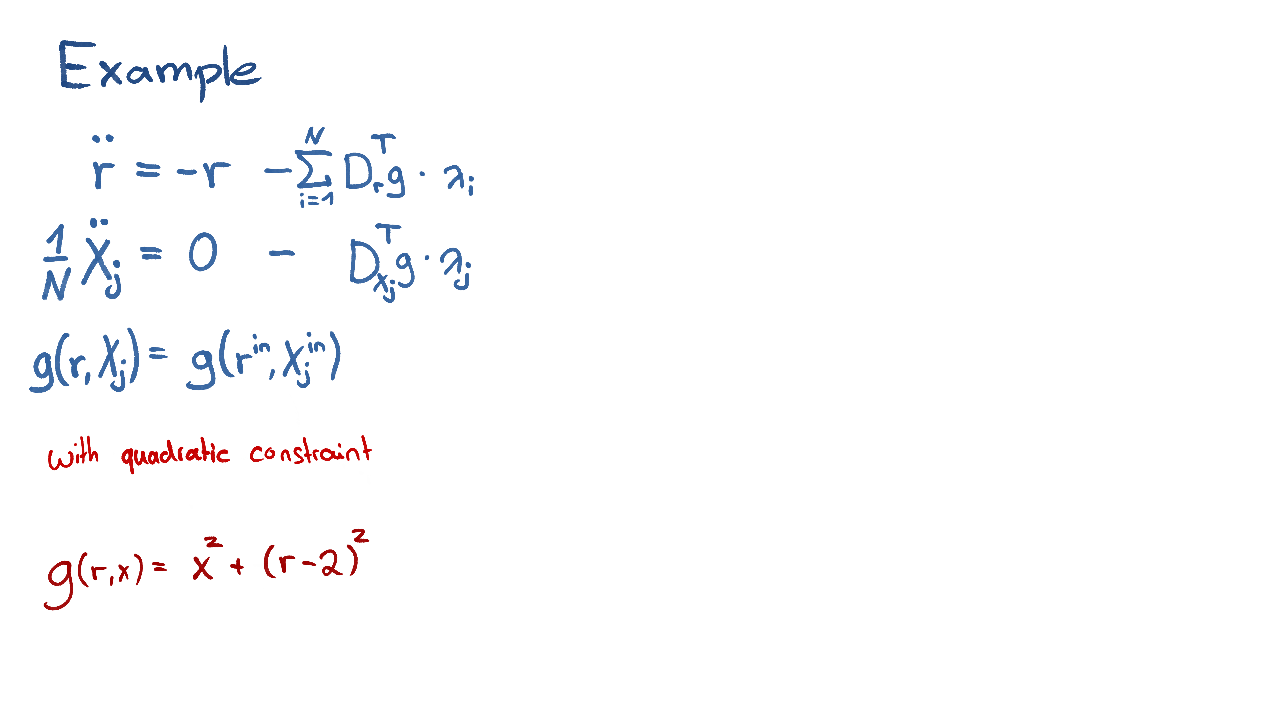 Example
r̈ = -r - ∑_{i=1}^{N} D_r^T g · λ_i
1/N Ẍ_j = 0 - D_{X_j}^T g · λ_j
g(r, X_j) = g(r^{in}, X_j^{in})
with quadratic constraint
g(r,x) = x² + (r-2)²